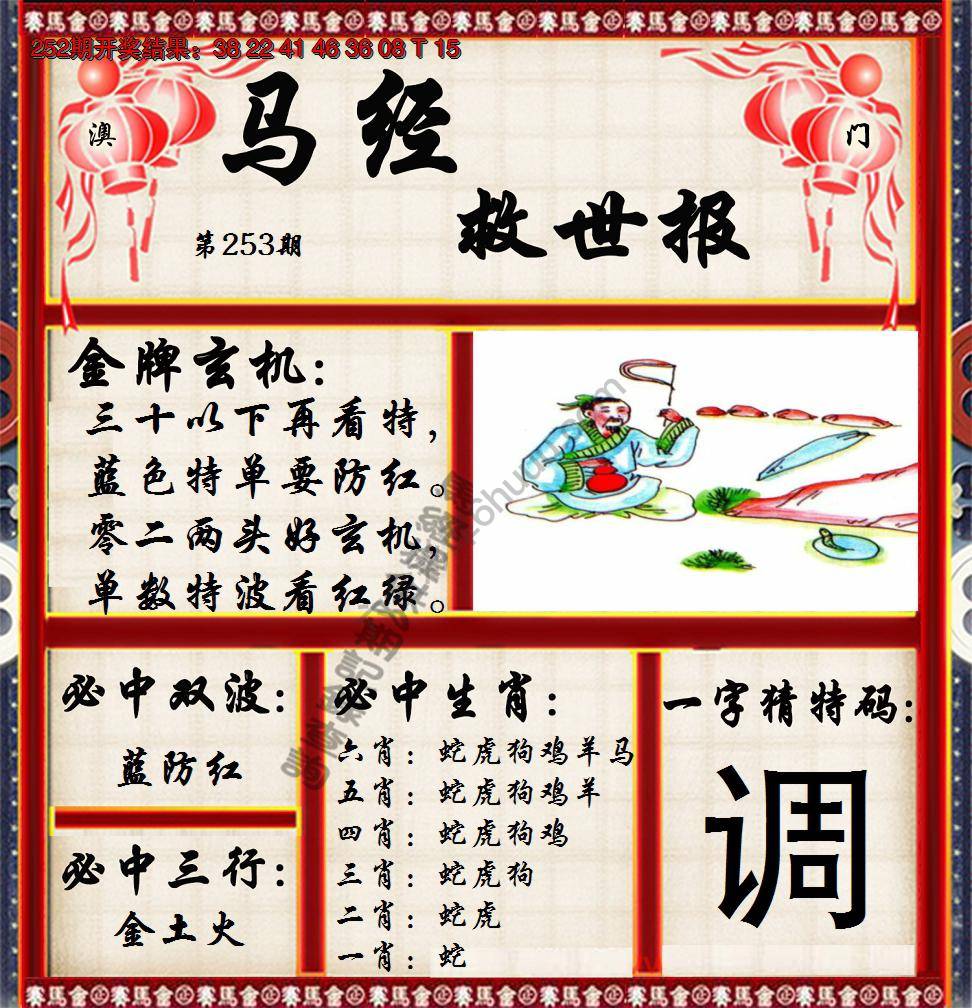 賽馬會 賽馬會 賽馬會 賽馬會 賽馬會 賽馬會 賽馬會
252期开奖结果：38 22 41 46 36 08 T 15
澳
门
马经
救世报
第253期
金牌玄机：
三十以下再看特，
蓝色特单要防红。
零二两头好玄机，
单数特波看红绿。
必中双波：
蓝防红
必中三行：
金土火
必中生肖：
六肖：蛇虎狗鸡羊马
五肖：蛇虎狗鸡羊
四肖：蛇虎狗鸡
三肖：蛇虎狗
二肖：蛇虎
一肖：蛇
一字猜特码：
调